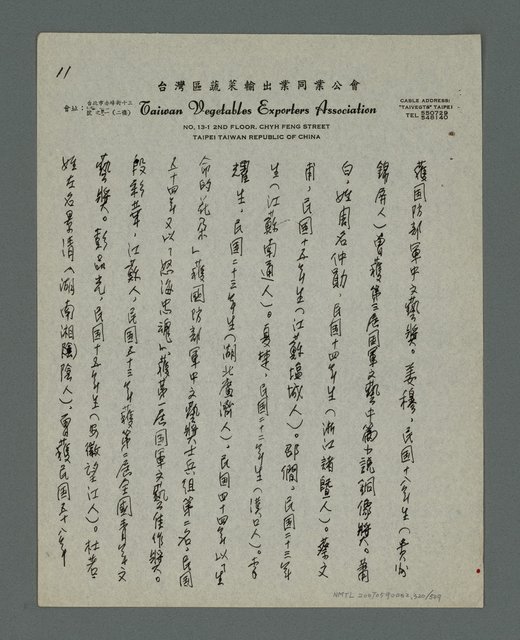 11
台灣區蔬菜輸出業同業公會
會址：台北市赤峰街十三號之一（二樓）
Taiwan Vegetables Exporters Association
CABLE ADDRESS:
"TAIVEGTS" TAIPEI
TEL 550729
548140
NO, 13-1 2ND FLOOR. CHYH FENG STREET
TAIPEI TAIWAN REPUBLIC OF CHINA
獲国防部軍中文藝獎。姜穆，民国十八年生（貴州
錦屏人）曾獲第三屆国軍文藝中篇小說銅像獎。蕭
白，姓周名仲勛，民国十四年生（浙江諸暨人）。蔡文
甫，民国十五年生（江蘇塩城人）。邵僩，民国二十三年
生（江蘇南通人）。夏楚，民国二十二年生（漢口人）。李
耀生，民国二十三年生（湖北廣濟人），民国四十四年以「生
命的花朵」獲国防部軍中文藝獎士兵組第二名，民国
五十四年又以「怒海忠魂」獲第一屆国軍文藝佳作獎。
段彩華，江蘇人，民国五十三年獲第二屆全国青年文
藝獎。彭品光，民国十五年生（安徽望江人）。杜若
姓左名景清（湖南湘陰人），曾獲民国五十八年
NMTL 20070590082.320/509